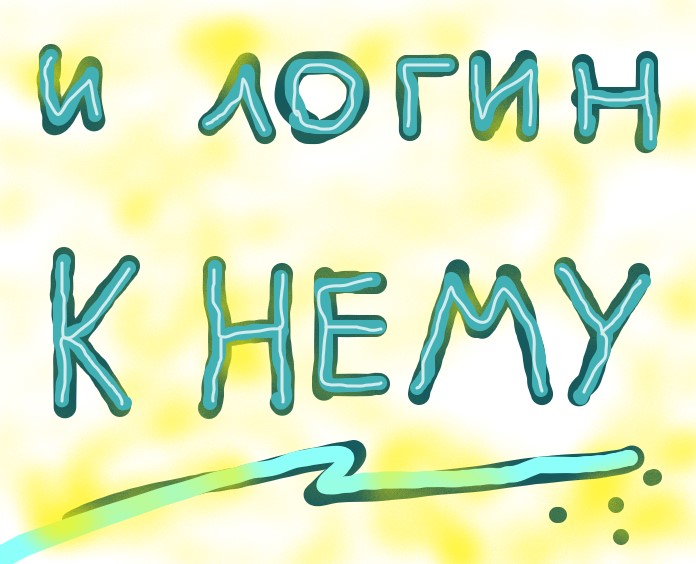 И ЛОГИН
К НЕМУ